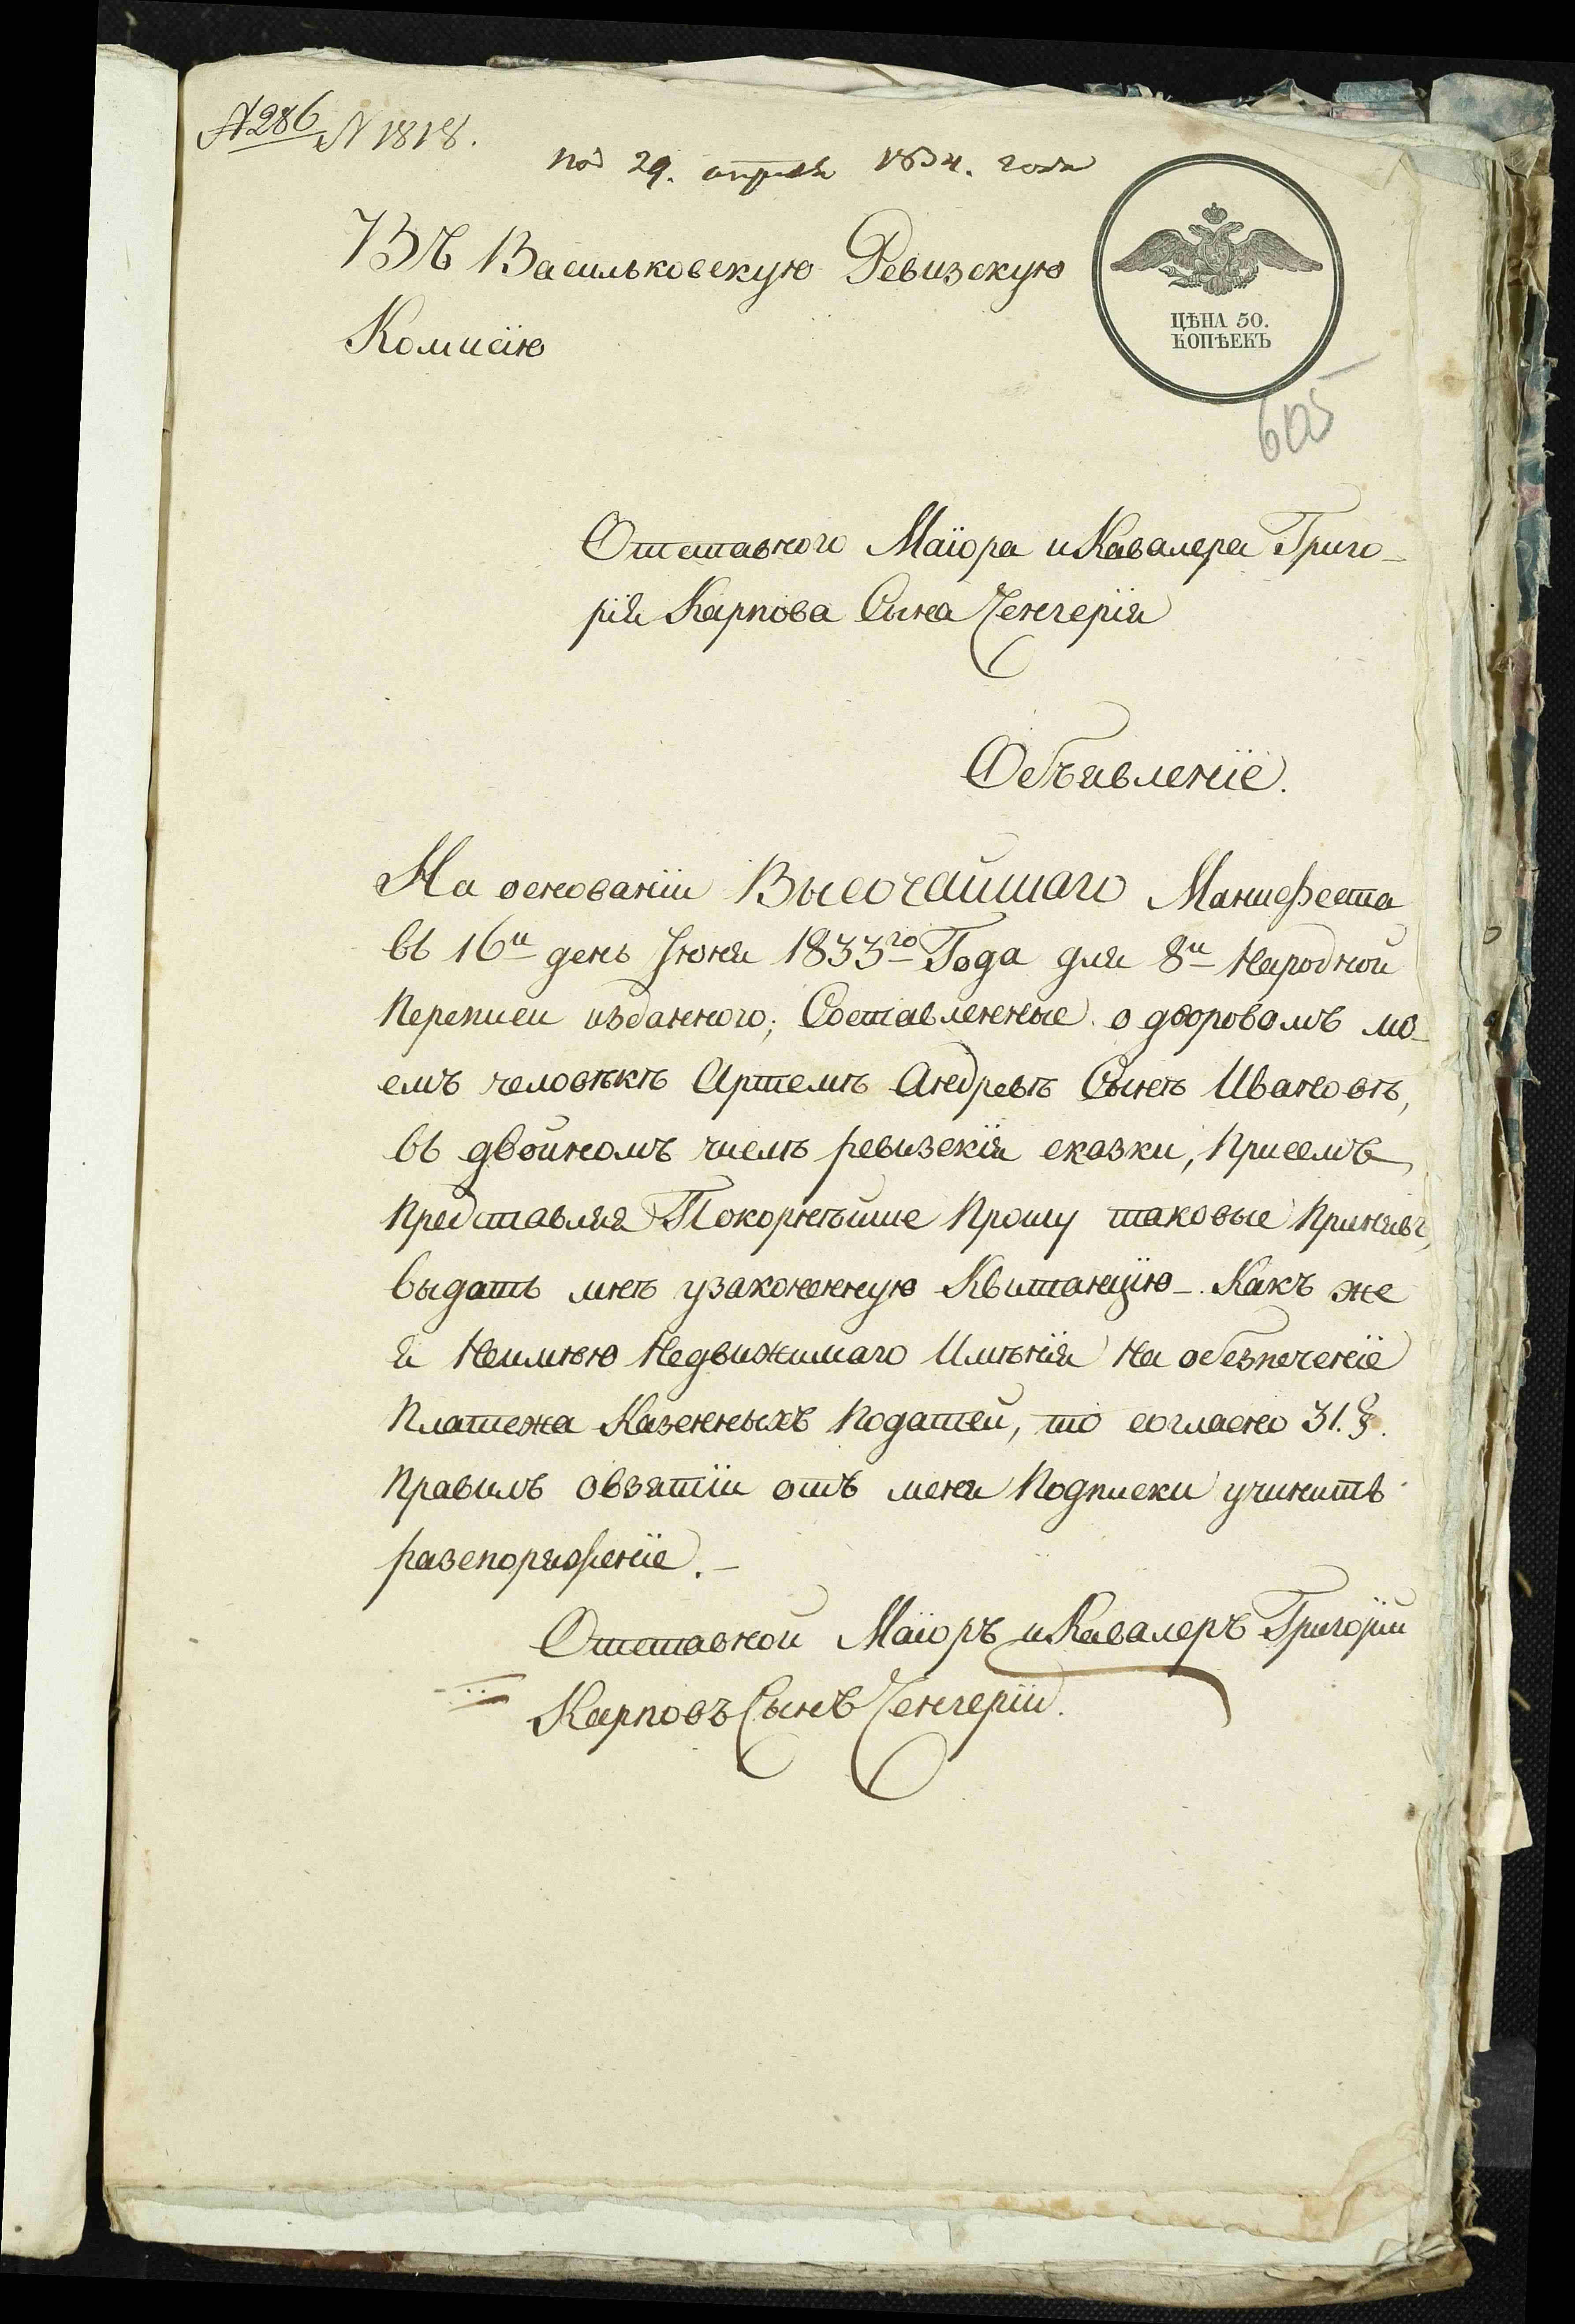 №286 N 1818.
под 29. апреля 1834. года
Въ Васильковскую Ревизскую
Комисію
ЦѢНА 50.
КОПѢЕКЪ
605
Отставного Маіора и Кавалера Григо-
рія Карпова Сына Ченгерія
Объявленіе.
На основаніи Высочайшаго Манифеста
въ 16й день Іюня 1833го Года для 8й Народной
Переписи изданного; Составленные о дворовомъ мо-
емъ человѣкѣ Артемѣ Андревѣ Сынѣ Ивановѣ,
въ двойномъ числѣ ревизскія сказки, Присемъ
Представляя Покорнѣйше Прошу таковые Принявъ,
выдать мнѣ узаконенную Квитанцію. Какъ же
я Неимѣю Недвижимаго Имѣнія На обезпеченіе
Платежа Казенныхъ Податей, то согласно 31.§.
Правилъ овзятіи отъ меня Подписки учинить
разспоряженіе.-
Отставной Маіоръ и Кавалеръ Григорій
Карповъ Сынъ Ченгерій.